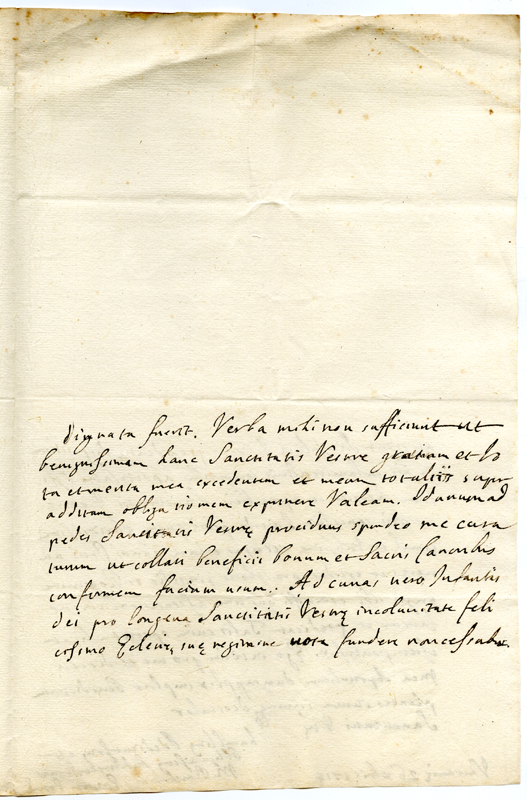 dignata fuerit. Verba mihi non sufficiunt ut
benignissimam hanc Sanctitatis Vestrę gratiam et
ta et merita mea excedentem et meam totaliis supr
additam obligationem exprimere Valeam. Id unum ad
pedes Sanctitatis Vestrę prociduus spondeo me cura
turum ut collati beneficii bonum et Sacris Canonibus
conformem faciam usum. Ad cunas vero Infantis
dei pro longęva Sanctitatis Vestrę incolumitate feli
cissimo Eccleię suę regimine vota fundere non cessabo.